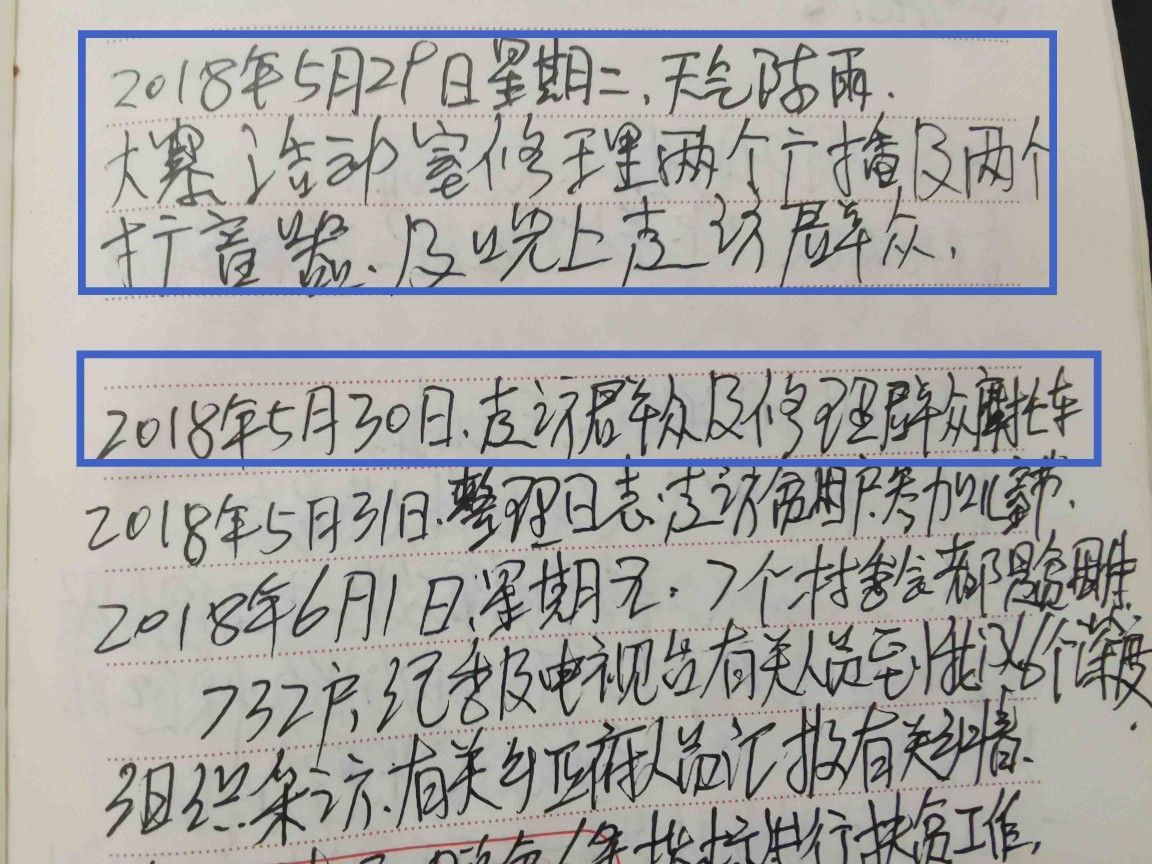 2018年5月29日星期二、天气阵雨.
大寨活动室修理两个广播及两个
扩音器.及晚上走访群众.
2018年5月30日.走访群众及修理群众摩托车
2018年5月31日.整理日志.走访贫困户
2018年6月1日.星期五.7个村委会都是贫困
732户,纪委及电视台有关人员到我议6个
组织采访.有关乡政府人员汇报有关事情.
进行扶贫工作.